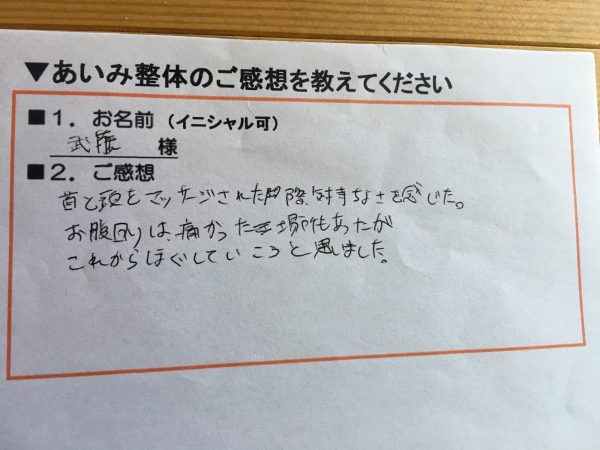 ▼あいみ整体のご感想を教えてください
■1. お名前（イニシャル可）
武藤 様
■2. ご感想
首と頭をマッサージされた際気持ちよさを感じた。
お腹回りは、痛かった場所もあったが
これからほぐしていこうと思いました。